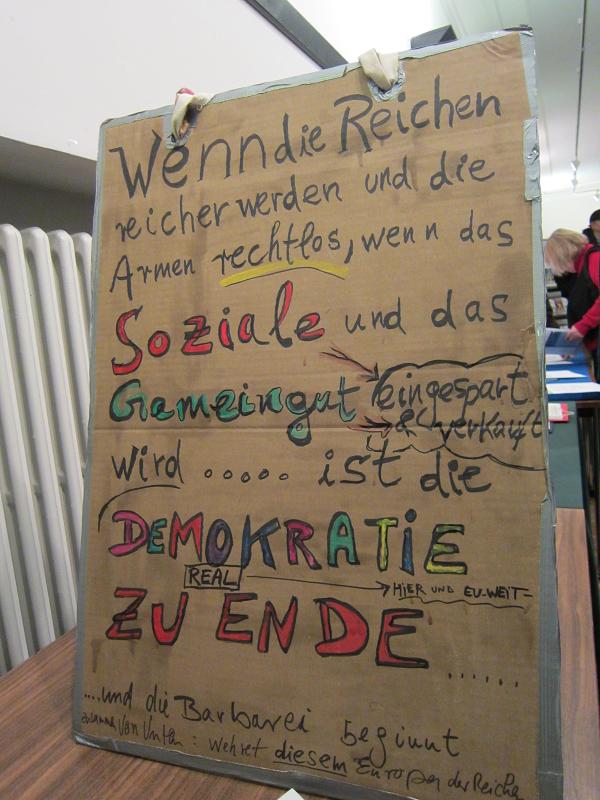 Wenn die Reichen
reicher werden und die
Armen rechtlos, wenn das
Soziale und das
Gemeingut eingespart
& verkauft
wird ..... ist die
DEMOKRATIE
REAL HIER UND EU-WEIT=
ZU ENDE ......
....und die Barbarei beginnt
von Unten: wehret diesem Europa der Reichen